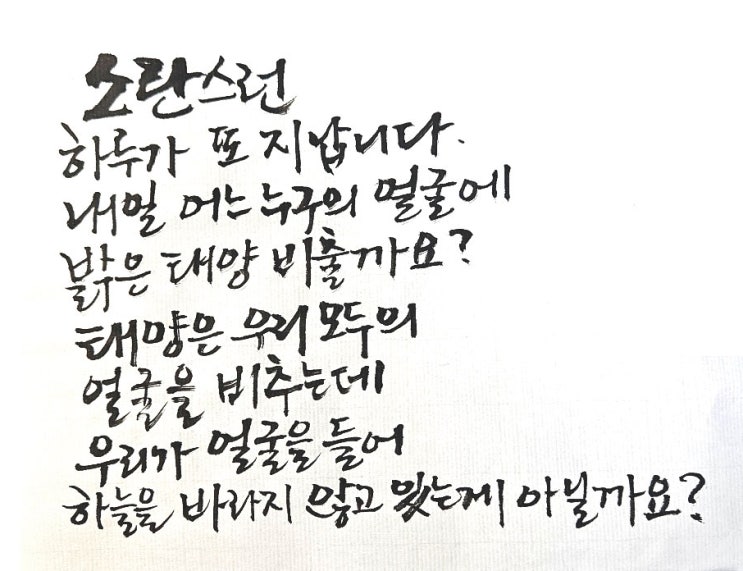 소란스런
하루가 또 지납니다.
내일 어느 누구의 얼굴에
밝은 태양 비출까요?
태양은 우리 모두의
얼굴을 비추는데
우리가 얼굴을 들어
하늘을 바라지 않고 있는게 아닐까요?